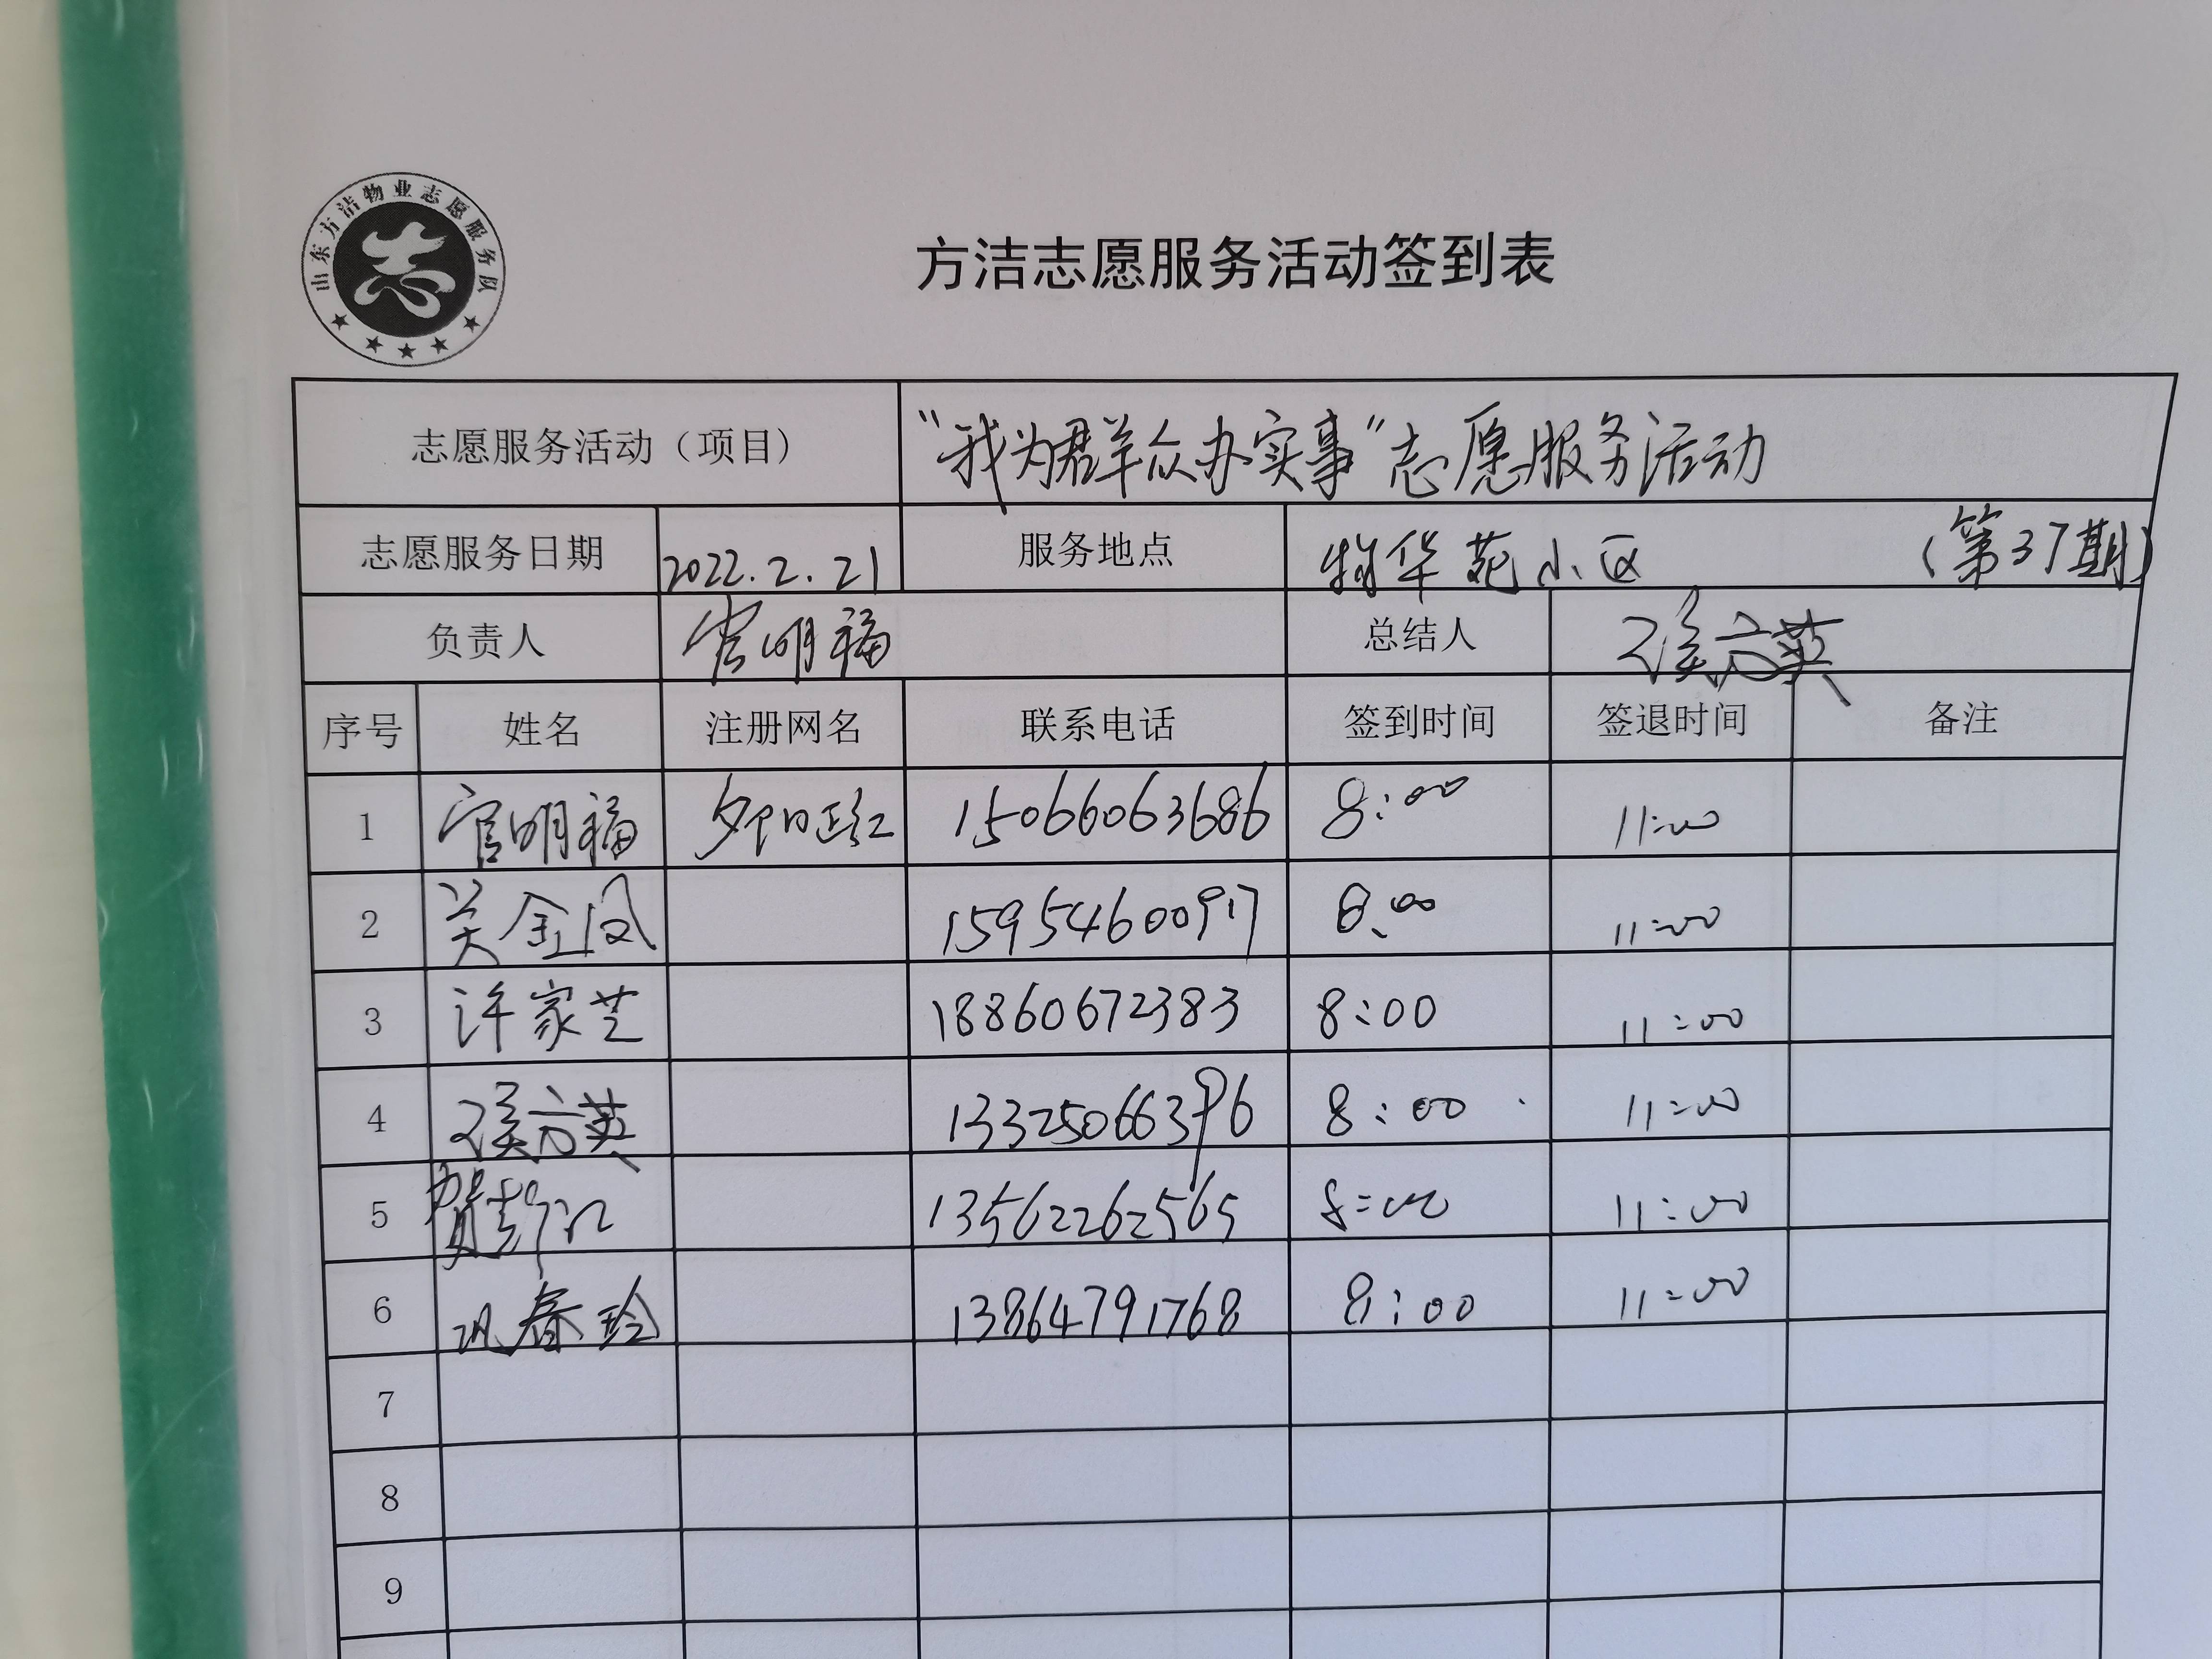 山东方洁物业志愿服务队
志
方洁志愿服务活动签到表
志愿服务活动（项目） “我为群众办实事”志愿服务活动
志愿服务日期 2022.2.21 服务地点 物华苑小区 （第37期）
负责人 官明福 总结人 英
序号 姓名 注册网名 联系电话 签到时间 签退时间 备注
1 官明福 夕阳正红 15066063686 8:00 11:00
2 关金凤 15954600917 8:00 11:00
3 许家芝 18860672383 8:00 11:00
4 英 13325066396 8:00 11:00
5 贺 13562262565 8:00 11:00
6 巩春玲 13864791768 8:00 11:00
7
8
9